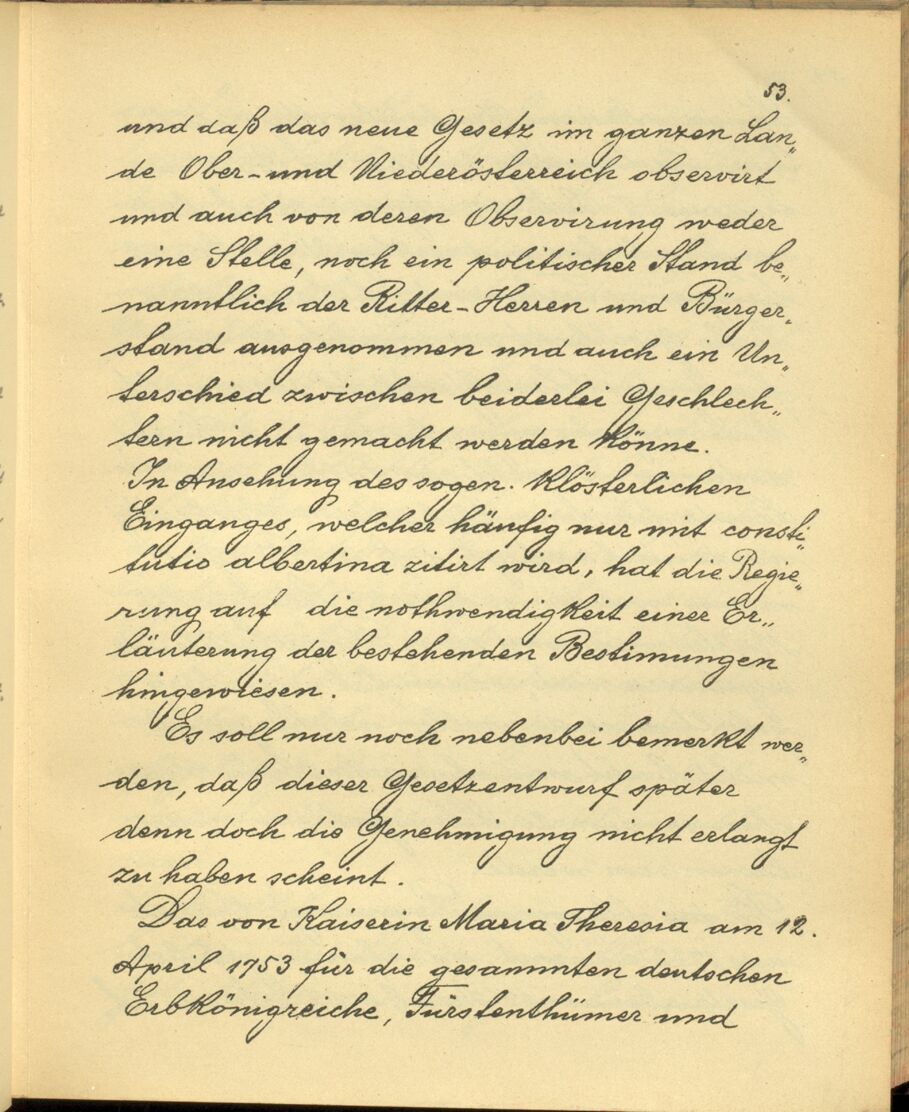 53.
und daß das neue Gesetz im ganzen Lan„
de Ober-und Niederösterreich observirt
und auch von deren Observirung weder
eine Stelle, noch ein politischer Stand be„
nanntlich der Ritter-Herren und Bürger„
stand ausgenommen und auch ein Un„
terschied zwischen beiderlei Geschlech„
tern nicht gemacht werden könne.
In Ansehung des sogen. klösterlichen
Einganges, welcher häufig nur mit consti„
tutio albertina zitirt wird, hat die Regie„
rung auf die nothwendigkeit einer Er„
läuterung der bestehenden Bestimungen
hingewiesen.
Es soll nur noch nebenbei bemerkt wer„
den, daß dieser Gesetzentwurf später
denn doch die Genehmigung nicht erlangt
zu haben scheint.
Das von Kaiserin Maria Theresia am 12.
April 1753 für die gesammten deutschen
Erbkönigreiche, Fürstenthümer und